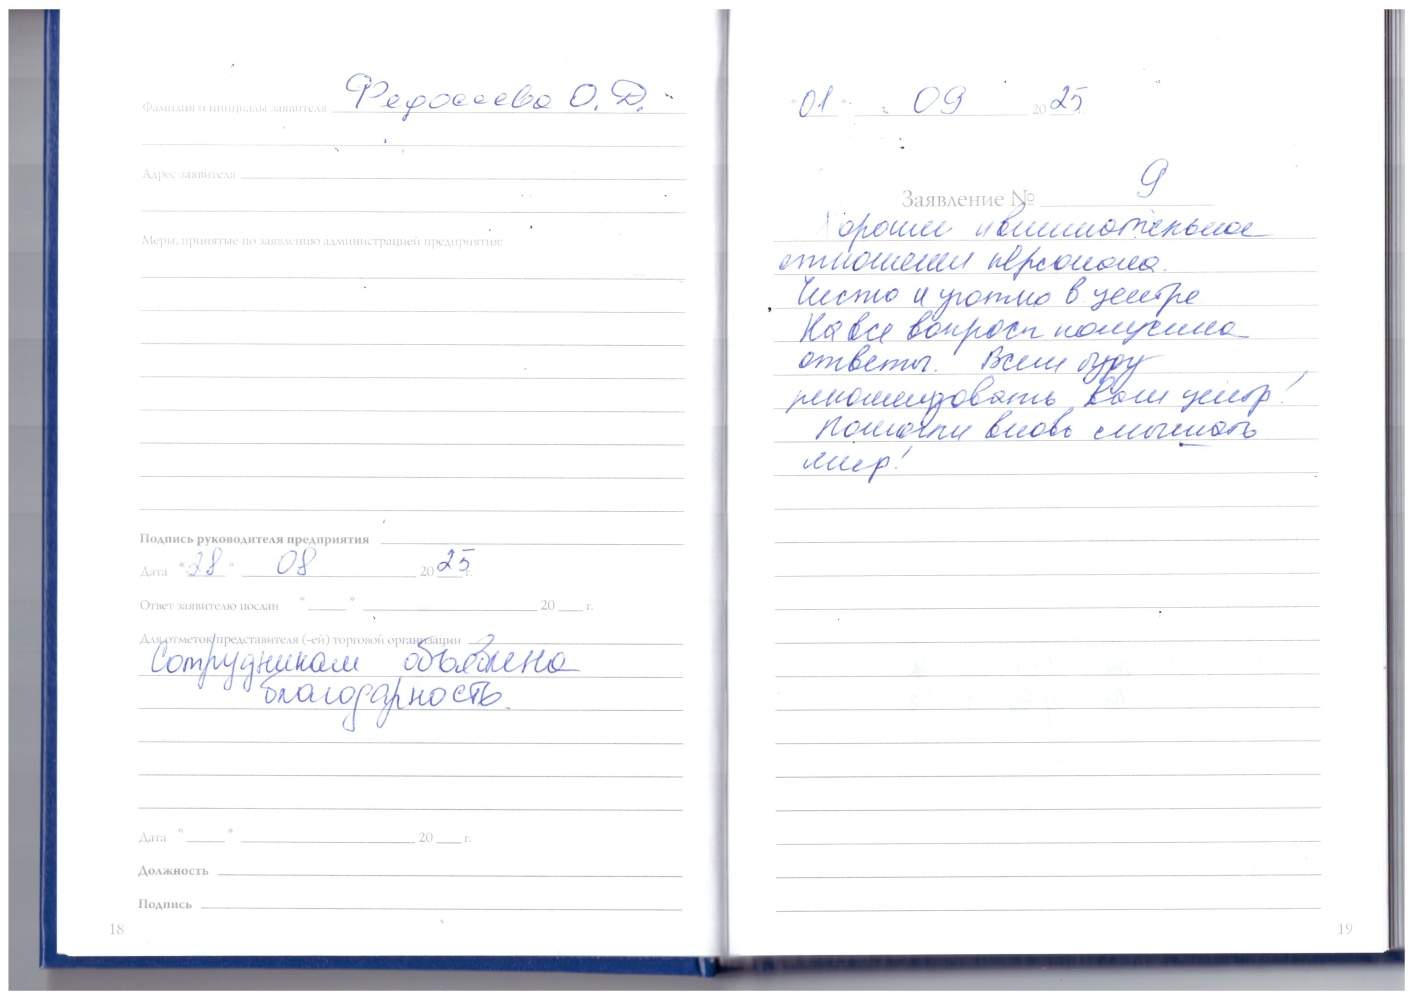 Фамилия и инициалы заявителя Федосеева О. Д.
Адрес заявителя
Меры, принятые по заявлению администрацией предприятия:
Подпись руководителя предприятия
Дата "28" 08 2025 г.
Ответ заявителю послан " " 20 г.
Для отметок представителя (-ей) торговой организации
Сотрудникам объявлена
благодарность.
Дата " " 20 г.
Должность
Подпись
18
"01" 09 2025
Заявление № 9
Хорошее и внимательное
отношение персонала.
Чисто и уютно в центре
На все вопросы получила
ответы. Всем буду
рекомендовать Ваш центр!
Помогли вновь слышать
мир!
19